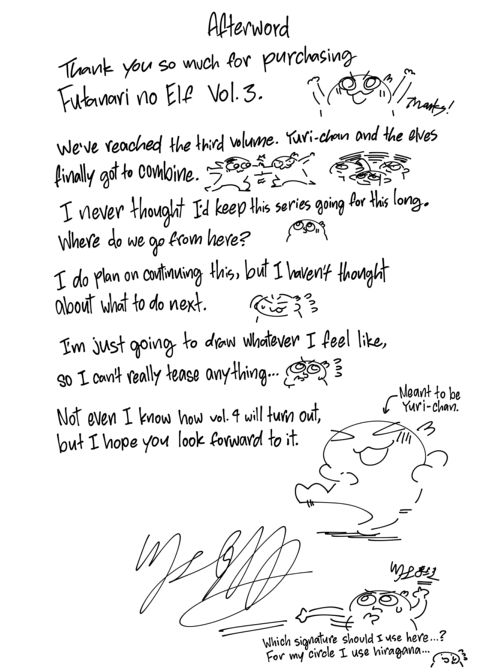 Afterword
Thank you so much for purchasing
Futanari no Elf Vol. 3.
Thanks!
We've reached the third volume. Yuri-chan and the elves
finally got to combine.
I never thought I'd keep this series going for this long.
Where do we go from here?
I do plan on continuing this, but I haven't thought
about what to do next.
I'm just going to draw whatever I feel like,
so I can't really tease anything...
Meant to be
Yuri-chan.
Not even I know how vol. 4 will turn out,
but I hope you look forward to it.
Which signature should I use here...?
For my circle I use hiragana...